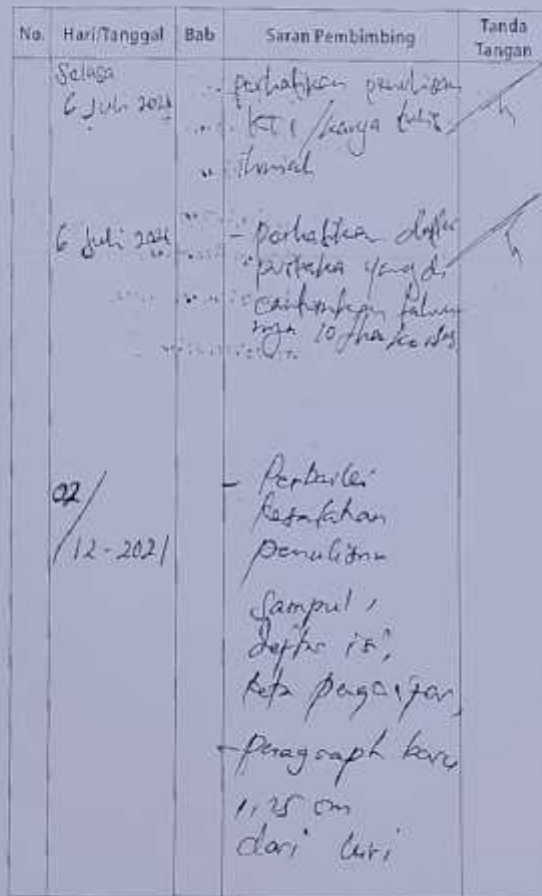 No. Hari/Tanggal Bab Saran Pembimbing Tanda Tangan
Selasa
6 Juli 2021
- perhatikan penulisan
KTI / karya tulis
ilmiah
6 Juli 2021
- perhatikan daftar
pustaka yang di
cantumkan tahun
nya 10 thn
02/12-2021
- Perbaiki
kesalahan
penulisan
sampul,
daftar isi,
kata pengantar,
- paragraph baru
1,25 cm
dari kiri